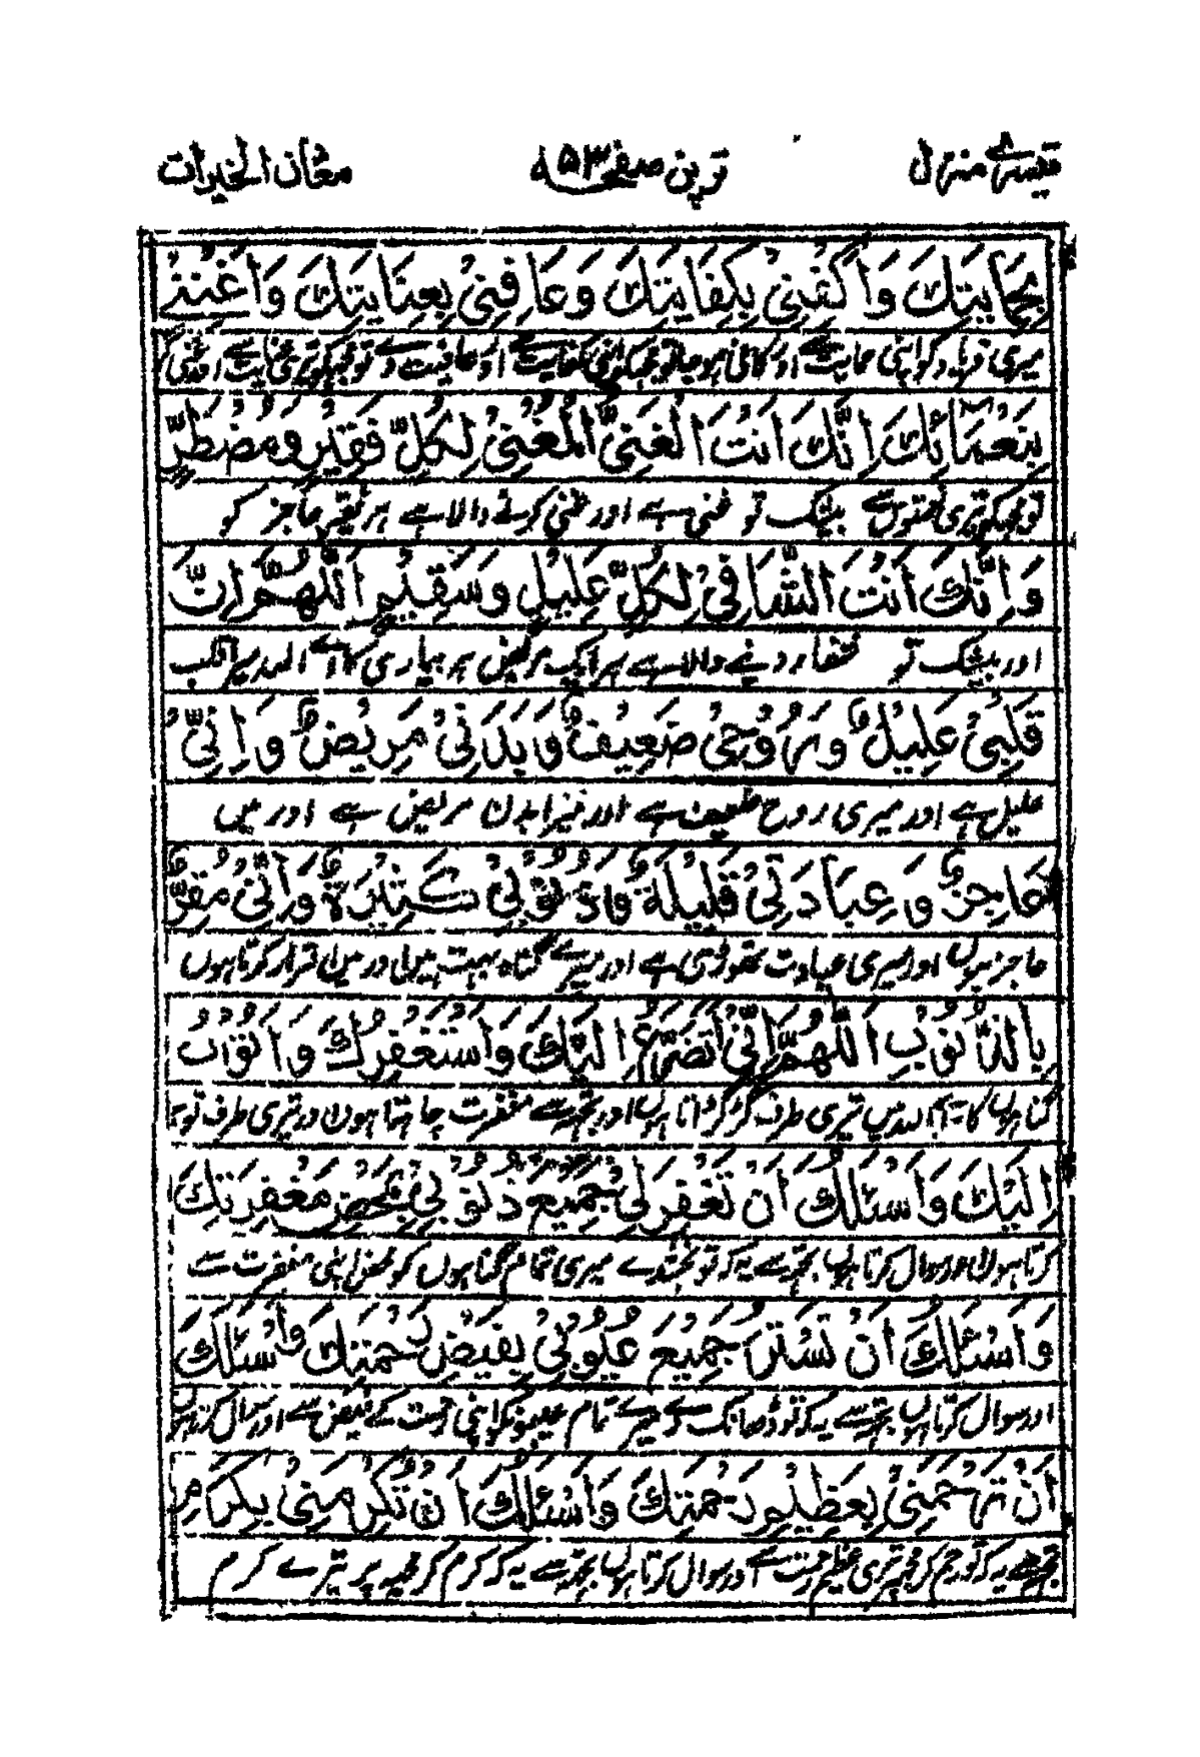 تیسری منزل تریپن صفحہ ۵۳ مغان الخیرات
بِحِمَايَتِكَ وَاكْفِنِيْ بِكِفَايَتِكَ وَعَافِنِيْ بِعِنَايَتِكَ وَاَغْنِنِيْ
میری فریاد کو اپنی حمایت سے اور کافی ہو جا تو مجھکو اپنی کفایت سے اور عافیت دے تو مجھکو تیری عنایت سے اور غنی
بِنَعْمَائِكَ اِنَّكَ اَنْتَ الْغَنِيُّ الْمُغْنِيْ لِكُلِّ فَقِيْرٍ وَمُضْطَرٍّ
تو مجھکو تیری نعمتوں سے بیشک تو غنی ہے اور غنی کرنے والا ہے ہر فقیر عاجز کو
وَاِنَّكَ اَنْتَ الشَّافِيْ لِكُلِّ عَلِيْلٍ وَسَقِيْمٍ اَللّٰهُمَّ اِنَّ
اور بیشک تو شفاء دینے والا ہے ہر ایک مریض ہر بیماری کا اے اللہ میرا قلب
قَلْبِيْ عَلِيْلٌ وَرُوْحِيْ ضَعِيْفٌ وَبَدَنِيْ مَرِيْضٌ وَاِنِّيْ
علیل ہے اور میری روح ضعیف ہے اور میرا بدن مریض ہے اور میں
عَاجِزٌ وَعِبَادَتِيْ قَلِيْلَةٌ وَذُنُوْبِيْ كَثِيْرَةٌ وَاِنِّيْ مُقِرٌّ
عاجز ہوں اور میری عبادت تھوڑی ہے اور میرے گناہ بہت ہیں اور میں اقرار کرتا ہوں
بِالذُّنُوْبِ اَللّٰهُمَّ اِنِّيْ اَتَضَرَّعُ اِلَيْكَ وَاَسْتَغْفِرُكَ وَاَتُوْبُ
گناہوں کا یہ میں تیری طرف گڑگڑاتا ہوں اور تجھ سے مغفرت چاہتا ہوں اور تیری طرف توبہ
اِلَيْكَ وَاَسْئَلُكَ اَنْ تَغْفِرَ لِيْ جَمِيْعَ ذُنُوْبِيْ بِمَحْضِ مَغْفِرَتِكَ
کرتا ہوں اور سوال کرتا ہوں تجھ سے یہ کہ تو بخشدے میری تمام گناہوں کو محض اپنی مغفرت سے
وَاَسْئَلُكَ اَنْ تَسْتُرَ جَمِيْعَ عُيُوْبِيْ بِفَيْضِ رَحْمَتِكَ وَاَسْئَلُكَ
اور سوال کرتا ہوں تجھ سے یہ کہ تو ڈھانک دے میرے تمام عیبونکو اپنی رحمت کے فیض سے اور سوال کرتا ہوں
اَنْ تَرْحَمَنِيْ بِعَظِيْمِ رَحْمَتِكَ وَاَسْئَلُكَ اَنْ تُكْرِمَنِيْ بِكَرَمِ
تجھ سے یہ کہ تو رحم کر مجھ پر تیری عظیم رحمت سے اور سوال کرتا ہوں تجھ سے یہ کہ کرم کر مجھ پر تیرے کرم